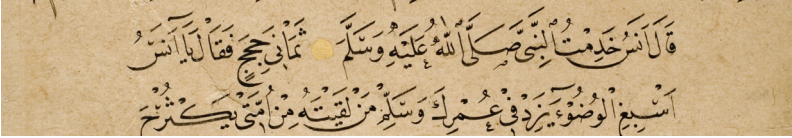 قَالَ اَنَسُ خَدِمْتُ النَّبِيَّ صَلَّى اللّٰهُ عَلَيْهِ وَسَلَّمَ ثَمَانِيَ حِجَجٍ فَقَالَ يَا اَنَسُ
اَسْبِغِ الْوُضُوْءَ يَزِدْ فِيْ عُمْرِكَ وَسَلِّمْ مَنْ لَقِيْتَهُ مِنْ اُمَّتِيْ يَكْثُرْ نَحَ